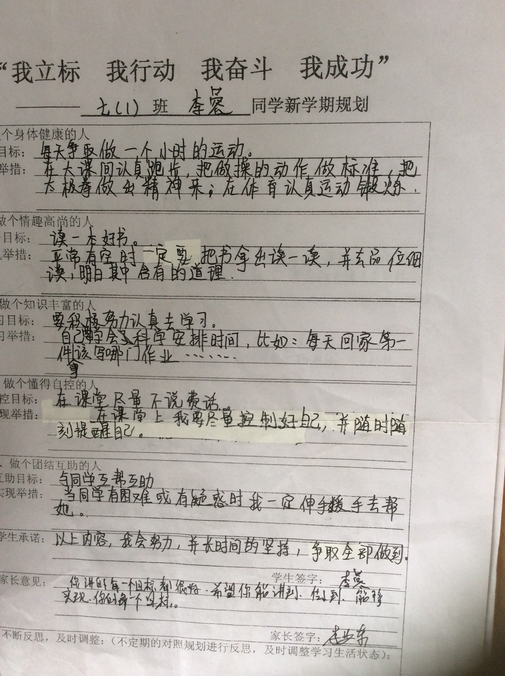 “我立标 我行动 我奋斗 我成功”
七(1) 班 李蓉 同学新学期规划
个身体健康的人
目标： 每天争取做一个小时的运动。
举措： 在大课间认真跑步，把做操的动作做标准，把
太极拳做出精神来；在体育认真运动锻炼.
做个情趣高尚的人
目标： 读一本好书。
举措： 平常有空时一定要把书拿出读一读，并去品位细
读，明白其中含有的道理.
做个知识丰富的人
习目标： 要积极努力认真去学习。
习举措： 自己学会科学安排时间，比如：每天回家第一
件该写哪门作业……
拿
做个懂得自控的人
控目标： 在课堂尽量不说费话
现举措： 在课堂上我要尽量控制好自己，并随时随
刻提醒自己。
做个团结互助的人
互助目标： 与同学互帮互助
实现举措： 当同学有困难或有疑惑时我一定伸手援手去帮
她。
学生承诺： 以上内容，我会努力，并长时间的坚持，争取全部做到。
学生签字： 李蓉
家长意见： 你讲的每一个目标都很好.希望你能讲到.做到.能够
实现.你的每个
家长签字：
不断反思，及时调整：（不定期的对照规划进行反思，及时调整学习生活状态）：